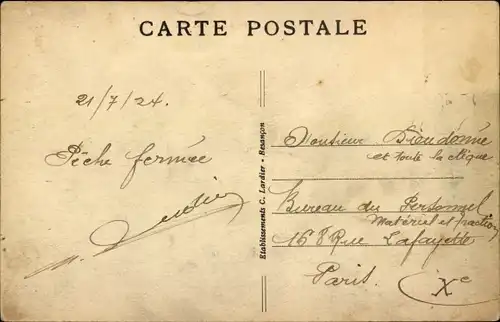 CARTE POSTALE
21/7/24.
Pêche fermée
Etablissements C. Lardier - Besançon
Monsieur Dieudonné
et toute la clique
Bureau du Personnel
Matériel et traction
168 Rue Lafayette
Paris. Xe